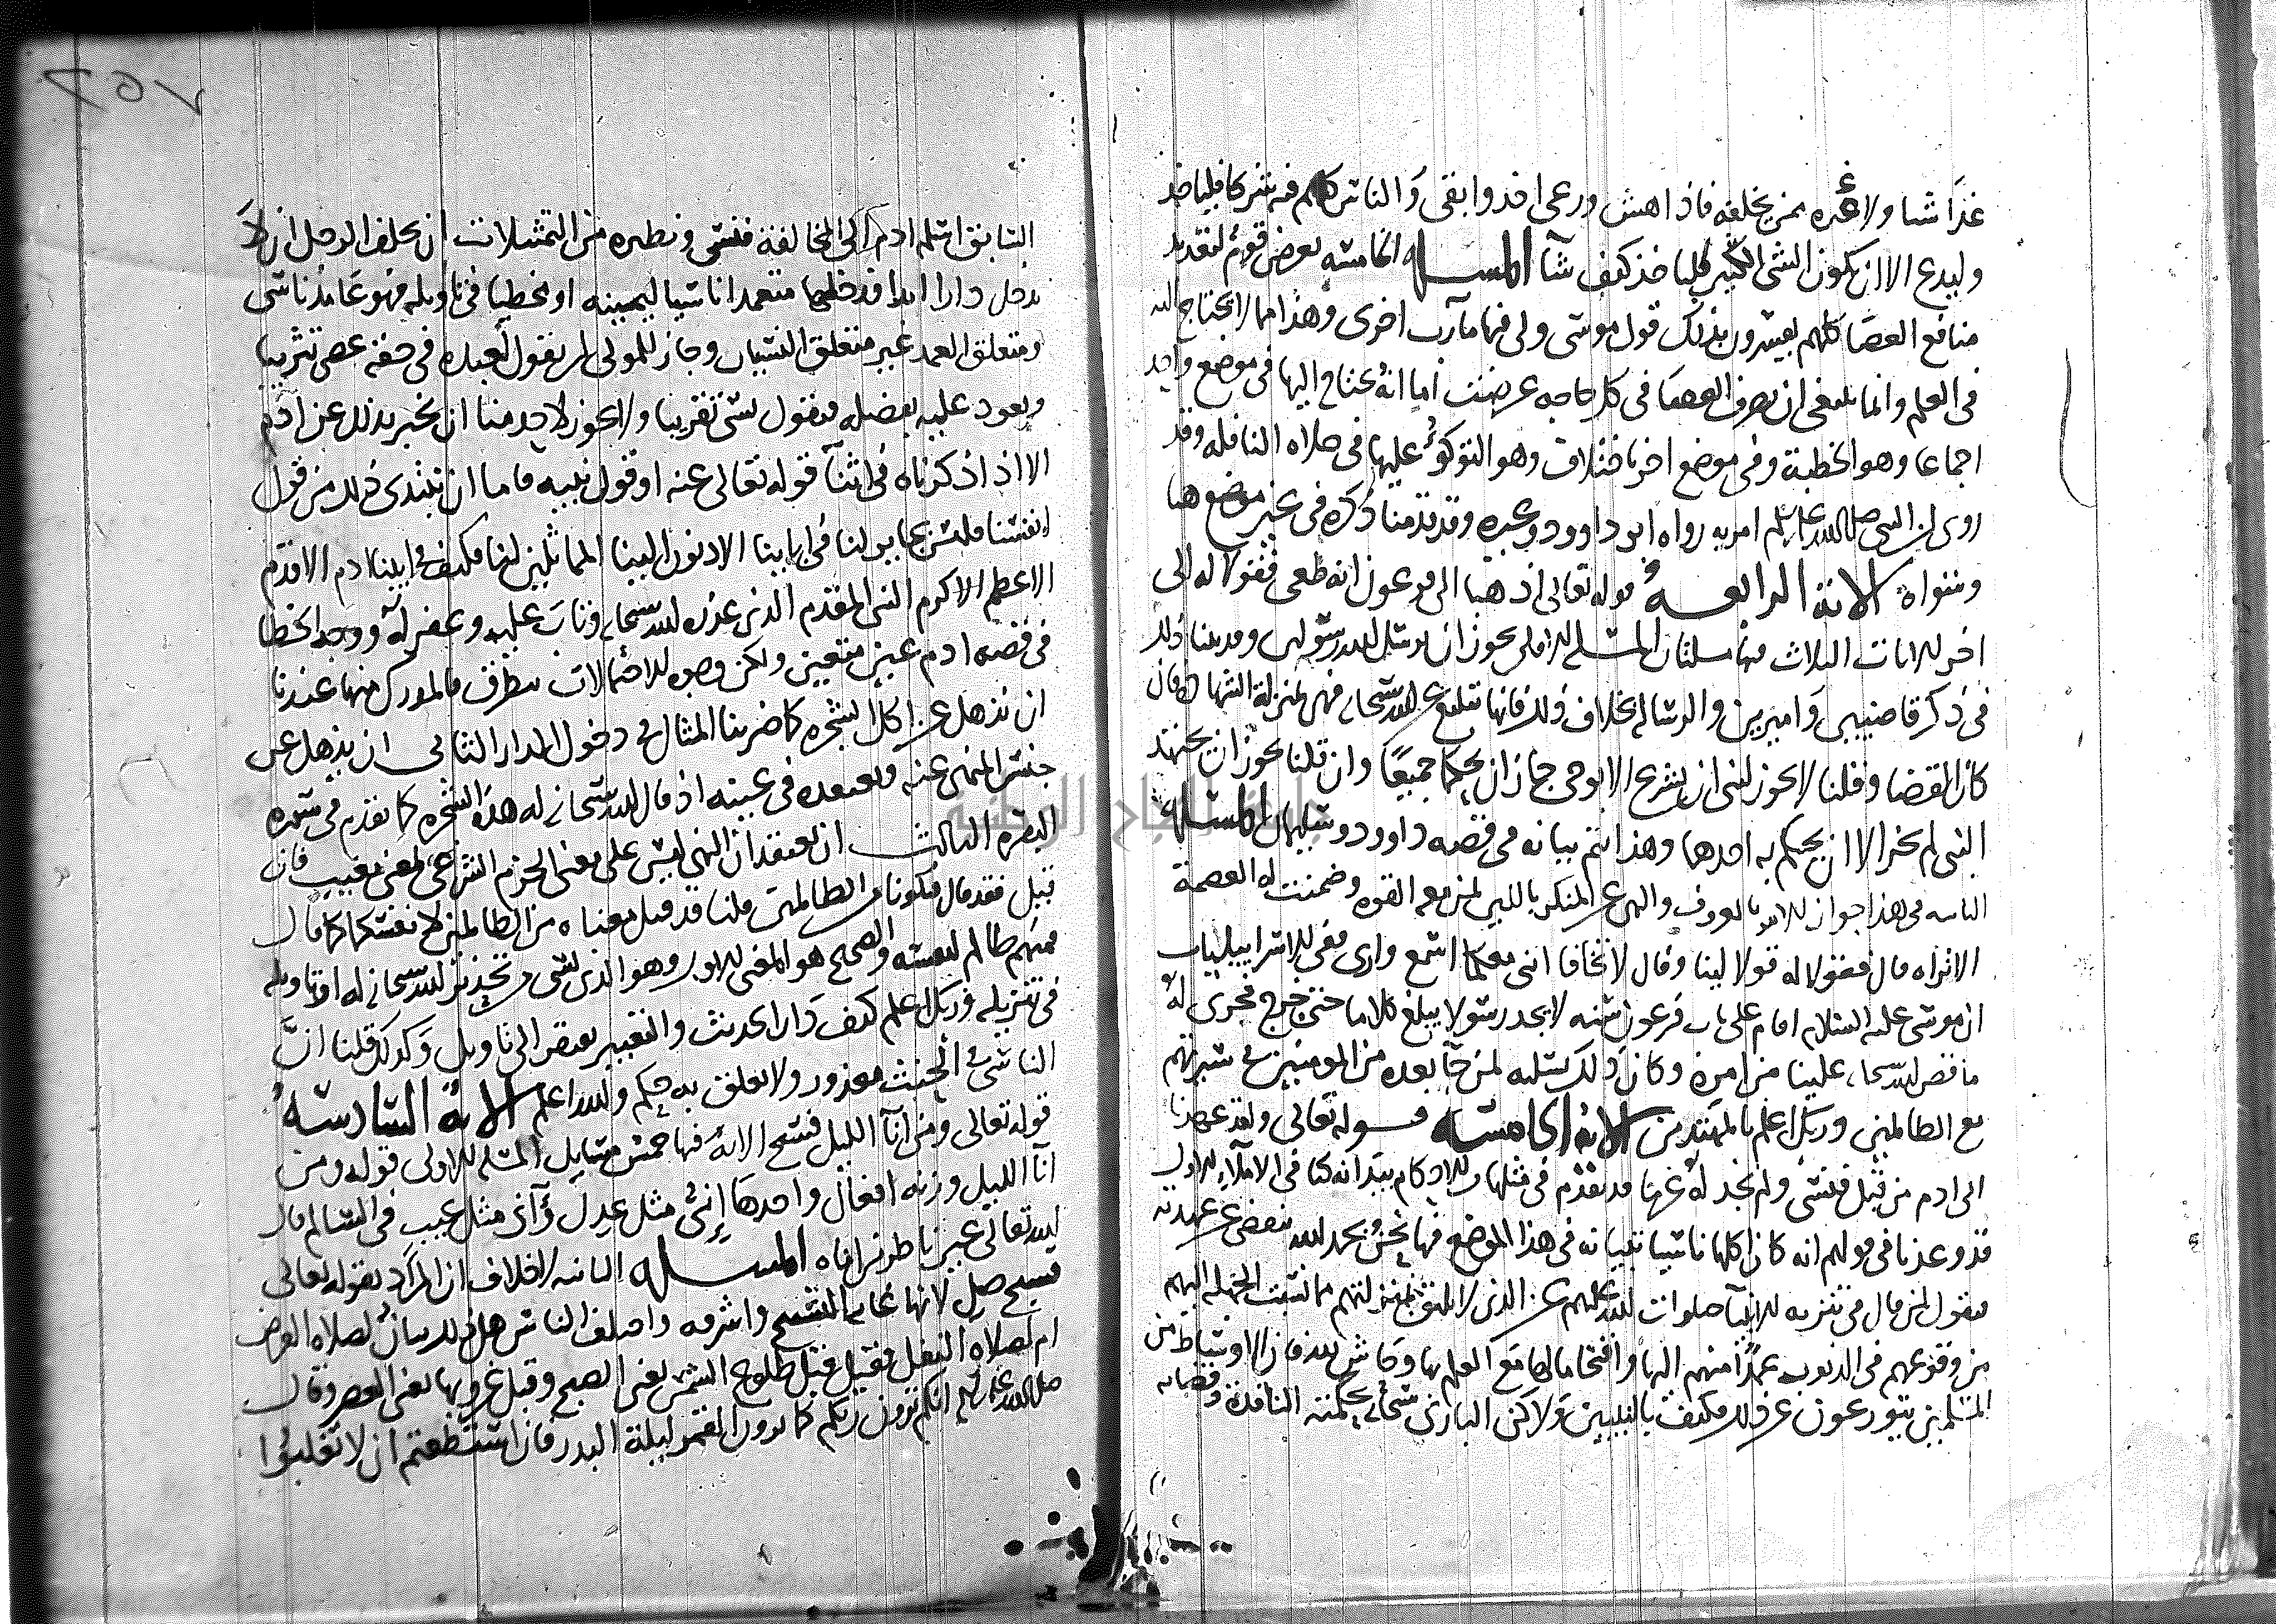 غذا شا ولا غيره بمن يخلفه فاذا هش ورعي اقدوا بقى والناس كلهم فيه شركا فلياخذ
وليدع الا ان يكون الشي الكثير فلياخذ كيف شآ المسله الخامسه تعرض قوم لتعديد
منافع العصا كانهم يفسرون بذلك قول موسى ولي فيها مآرب اخرى وهذا مما لا يحتاج اليه
في العلم وانما ينبغي ان يصرف العصا في كل حاجه عرضت اما انه يحتاج اليها في موضع واحد
اجماعا وهو الخطبة وفي موضع اخر باختلاف وهو التوكؤ عليها في صلاه النافله وقد
روي ان النبي صلى الله عليه وسلم امر به رواه ابو داوود وغيره وقد قدمنا ذكره في غير موضع هنا
وسواه الايه الرابعه قوله تعالى اذهبا الى فرعون انه طغى فقولا له الى
اخر الايات الثلاث فيها مسلتان المسله الاولى يجوز ان يرسل الله رسولين وقد بينا ذلك
في ذكر قاضيين واميرين والرساله بخلاف ذلك فانها تبليغ عن الله سبحانه فهي بمنزلة الشهادة فان
كان القضا وقلنا لا يجوز لنبي ان يشرع الا بوحي جاز ان يحكما جميعا وان قلنا يجوز ان يجتهد
النبي لم يجز الا ان يحكم به احدهما وهذا يتم بيانه في قصه داوود وسليمان المسله
الثانيه في هذا جواز الامر بالمعروف والنهي عن المنكر باللين لمن معه القوه وضمنت له العصمة
الا تراه قال فقولا له قولا لينا وقال لا تخافا انني معكما اسمع وارى ففي الاسراييليات
ان موسى عليه السلام اقام على باب فرعون سنه لا يجد رسولا يبلغ كلاما حتى خرج فجرى له
ما قص الله سبحانه علينا من امره وكان ذلك تسليه لمن جآ بعده من المومنين في سيرتهم
مع الظالمين وربك اعلم بالمهتدين الايه الخامسه قوله تعالى ولقد عهدنا
الى ادم من قبل فنسي ولم نجد له عزما قد تقدم في مثلها للاحكام بيد انه كنا في الاملاء الاول
قد وعدنا في قولهم انه كان اكلها ناسيا ببيانه في هذا الموضع فها نحن بحمد الله ننفض عن عهدته
فنقول لمن قال في تنزيه الانبيآ صلوات الله عليهم عن الذي لا يليق بمنزلتهم مما تنسب الجهله اليهم
من وقوعهم في الذنوب عمدا منهم اليها واقتحاما لها مع العلم بها وحاش لله فان الاوساط من
المسلمين يتورعون عن ذلك فكيف بالنبيين ولاكن الباري سبحانه بحكمته النافذة وقضايه
السابق اسلم ادم الى المخالفة فنسي ونظيره من التمثيلات ان يحلف الرجل ان لا
يدخل دارا ابدا فدخلها متعمدا ناسيا ليمينه او مخطيا في تاويله فهو عامد ناسي
ومتعلق العمد غير متعلق النسيان وجاز للمولى ان يقول لعبده في حقه عصى تثريبا
ويعود عليه بفضله فيقول نسي تقريبا ولا يجوز لاحد منا ان يخبر بذلك عن ادم
الا اذا ذكرناه في اثنآ قوله تعالى عنه او قول نبيه فاما ان نبتدي ذلك من قبل
انفسنا فليس بجايز لنا في ابآينا الادنين الينا المماثلين لنا فكيف في ابينا ادم الاقدم
الاعظم الاكرم النبي المقدم الذي عذره الله سبحانه وتاب عليه وغفر له ووجه الخطا
في قصه ادم غير متعين ولكن وجوه الاحتمالات تتطرق فالمدرك منها عندنا
ان يذهل عن اكل الشجره كما ضربنا المثال في دخول الدار الثاني ان يذهل عن
جنس المنهي عنه ويعتقده في عينه اذ قال الله سبحانه له هذه الشجره كما تقدم في سوره
البقره الثالث ان يعتقد ان النهي ليس على معنى الجزم الشرعي لمعنى مغيب فان
قيل فقد قال فتكونا من الظالمين قلنا قد قيل معناه من الظالمين لانفسكما كما قال
فمنهم ظالم لنفسه والصحيح هو المعنى الاول وهو الذي نسي من تحذير الله سبحانه له او تاويله
في تنزيله وربك اعلم كيف دار الحديث والتعبير يفتقر الى تاويل وكذلك قلنا ان
الناسي في الحنث معذور ولا يعلق به حكم والله اعلم الايه السادسه
قوله تعالى ومن انآ الليل فسبح الايه فيها خمس مسايل المسله الاولى قوله ومن
انآ الليل وزنه افعال واحدها إني مثل عدل وآني مثل عيب في السالم قال
الله تعالى غير ناظرين اناه المسله الثانيه لا خلاف ان المراد بقوله تعالى
فسبح صل لانها غاية التسبيح واشرفه واختلف الناس هل ذلك بيان لصلاه الفرض
ام لصلاه النفل فقيل قبل طلوع الشمس يعني الصبح وقبل غروبها يعني العصر وقال
صلى الله عليه وسلم انكم ترون ربكم كما ترون القمر ليلة البدر فان استطعتم ان لا تغلبوا